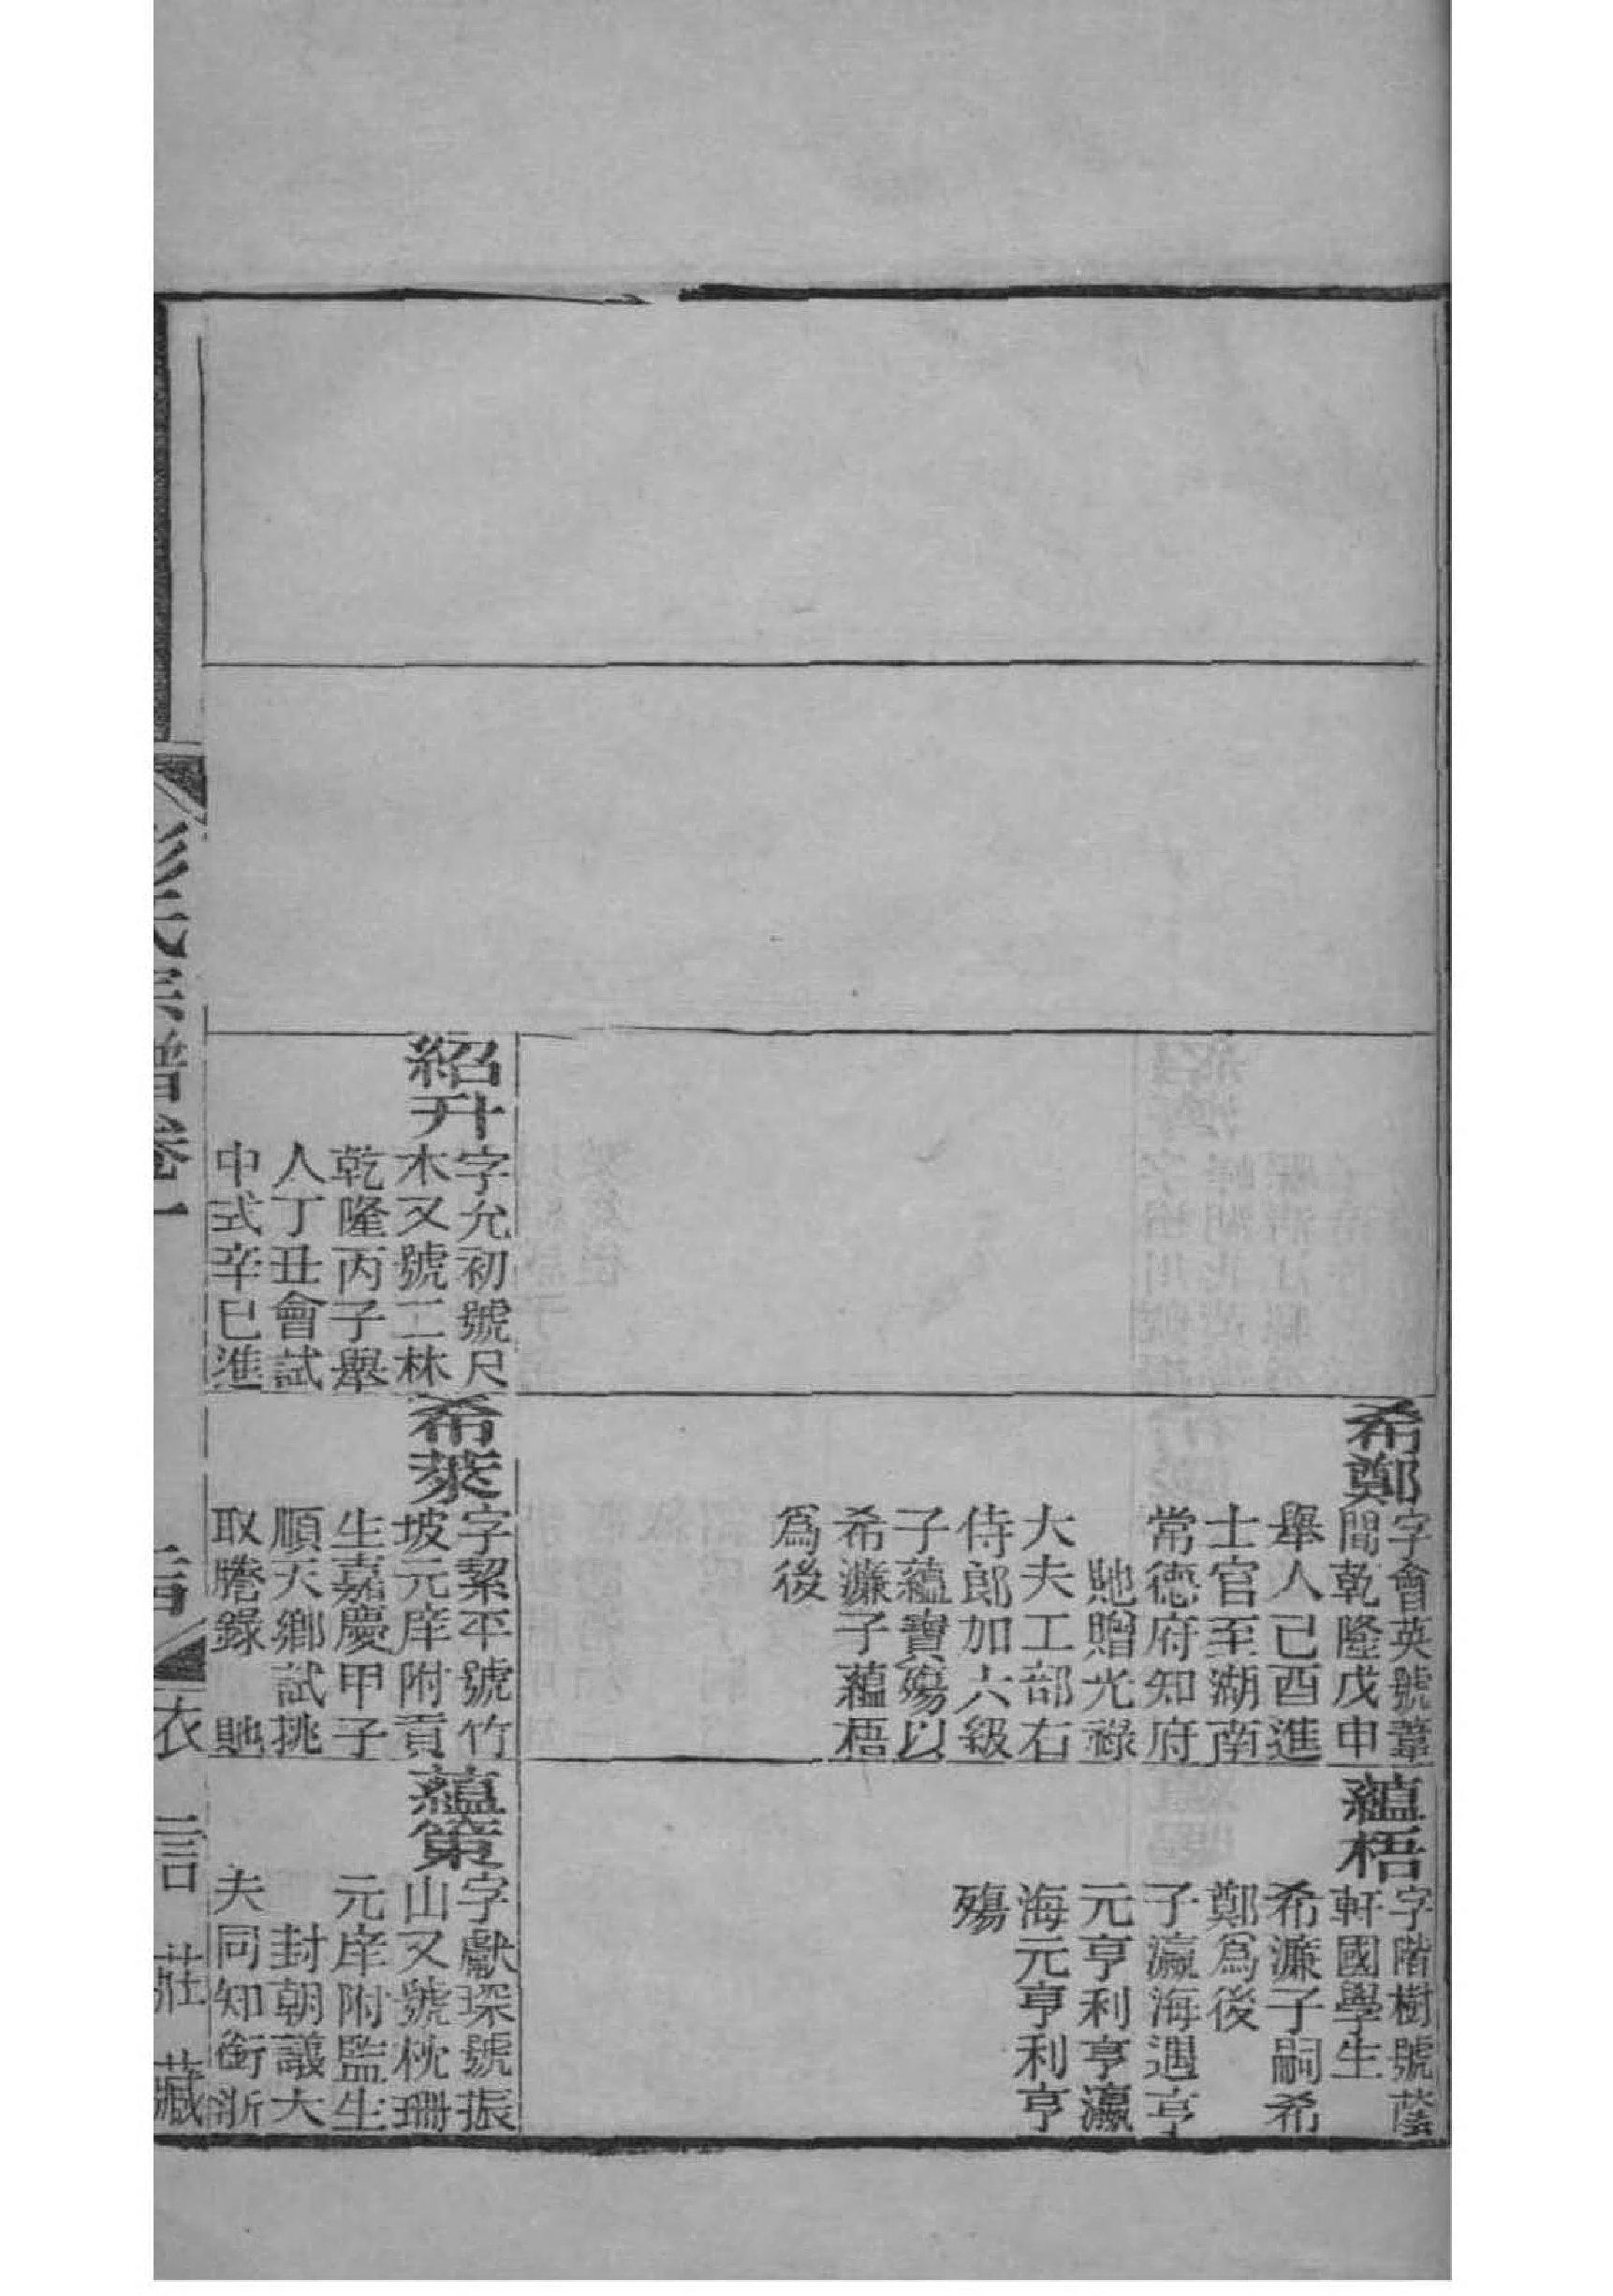 希鄭
字會英號葦
間乾隆戊申
舉人己酉進
士官至湖南
常德府知府
貤贈光祿
大夫工部右
侍郎加六級
子蘊寶殤以
希濂子蘊梧
爲後
蘊梧
字階樹號蔭
軒國學生
希濂子嗣希
鄭爲後
子瀛海遇亨
元亨利亨瀛
海元亨利亨
殤
紹升
字允初號尺
木又號二林
乾隆丙子舉
人丁丑會試
中式辛巳進
希萊
字絜平號竹
坡元庠附貢
生嘉慶甲子
順天鄉試挑
取謄錄 貤
蘊策
字獻琛號振
山又號枕珊
元庠附監生
封朝議大
夫同知銜浙
彭氏宗譜卷一
衣言莊藏